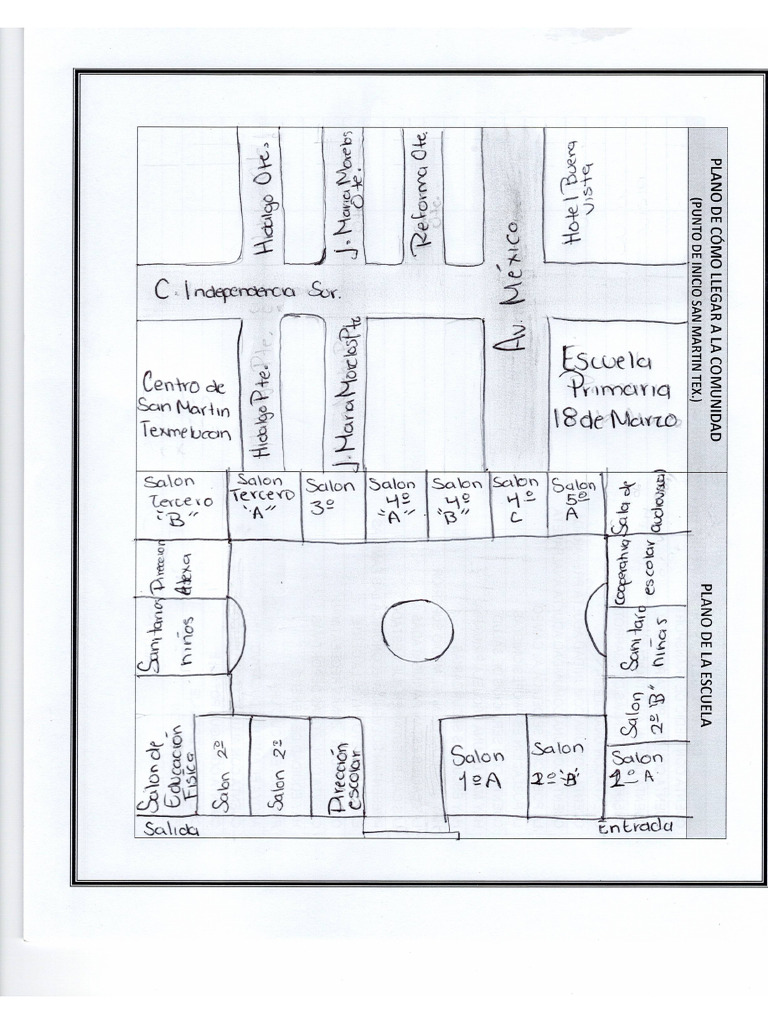 PLANO DE CÓMO LLEGAR A LA COMUNIDAD
(PUNTO DE INICIO SAN MARTIN TEX.)
Hidalgo Ote.
J. Maria Morelos
Ote.
Reforma Ote.
Av. México
Hotel Buena
vista
C. Independencia Sur.
Centro de
San Martin
Texmelucan
Hidalgo Pte.
J. Maria Morelos Pte
Escuela
Primaria
18 de Marzo
PLANO DE LA ESCUELA
Salon
Tercero
"B"
Salon
Tercero
"A"
Salon
3º
Salon
4º
"A"
Salon
4º
"B"
Salon
4º
C
Salon
5º
A
Sala de
audiovisual
Direccion
Cooperativa
escolar
Sanitarios
niños
Sanitaro
niñas
Salon
2º "B"
Salon de
Educación
Fisica
Salon 2º
Salon 2º
Dirección
escolar
Salon
1º A
Salon
2º "B"
Salon
2º A
Salida
Entrada